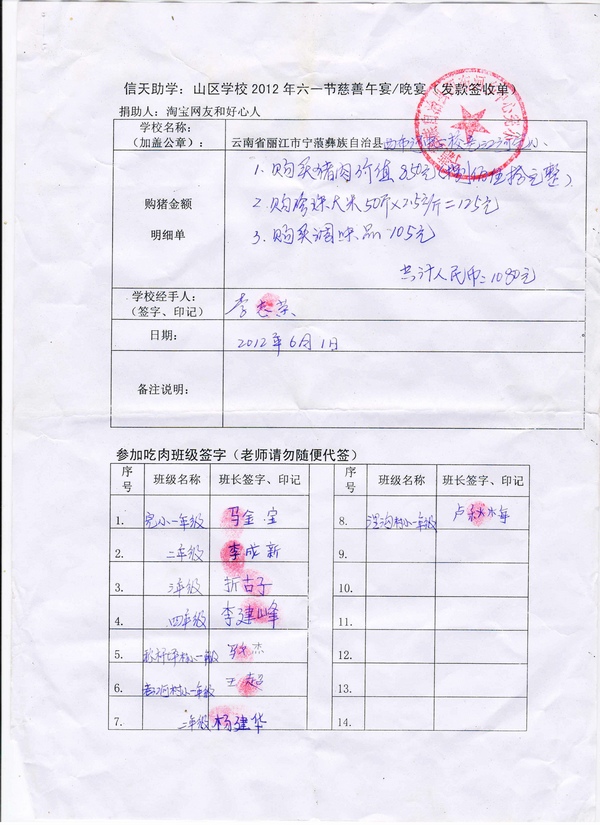 信天助学：山区学校2012年六一节慈善午宴/晚宴（发款签收单）
捐助人：淘宝网友和好心人
学校名称：
（加盖公章）：
云南省丽江市宁蒗彝族自治县
购猪金额
明细单
1. 购买猪肉价值850元(捌佰伍拾元整)
2. 购珍珠大米50斤×2.5元/斤=125元
3. 购买调味品105元
共计人民币:1080元
学校经手人：
（签字、印记）
李志荣
日期：
2012年6月1日
备注说明：
参加吃肉班级签字（老师请勿随便代签）
序号 班级名称 班长签字、印记 序号 班级名称 班长签字、印记
1. 完小一年级 马金宝 8. 村小一年级
2. 二年级 李成新 9.
3. 三年级 折古子 10.
4. 四年级 李建峰 11.
5. 村小一年级 12.
6. 村小一年级 王超 13.
7. 二年级 杨建华 14.